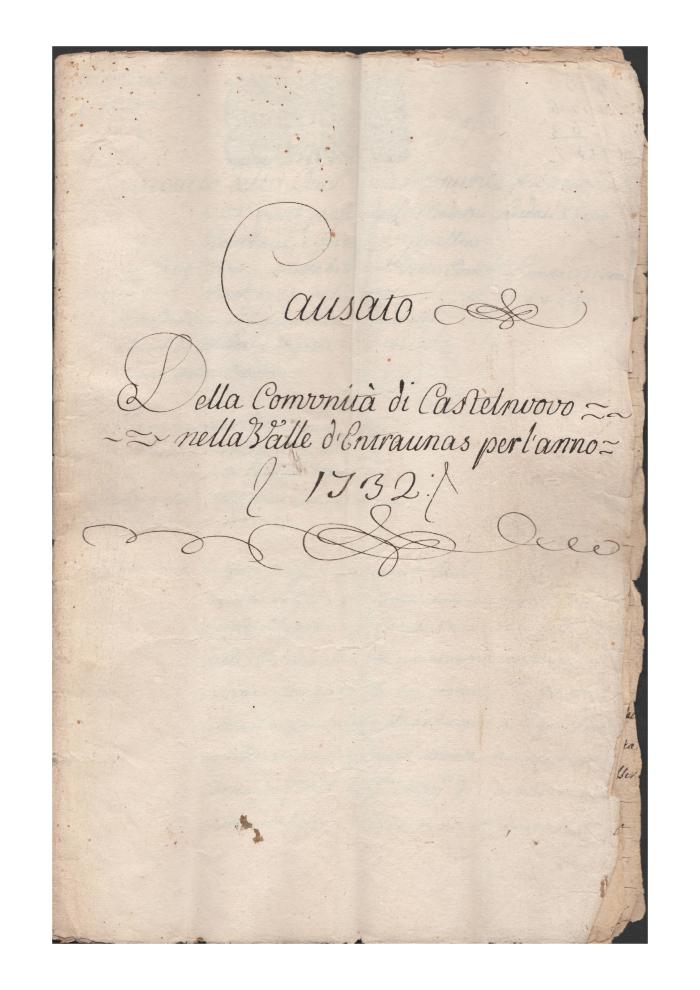 Causato
Della Comvnità di Castelnuovo
nella Valle d'Entraunas per l'anno
1732